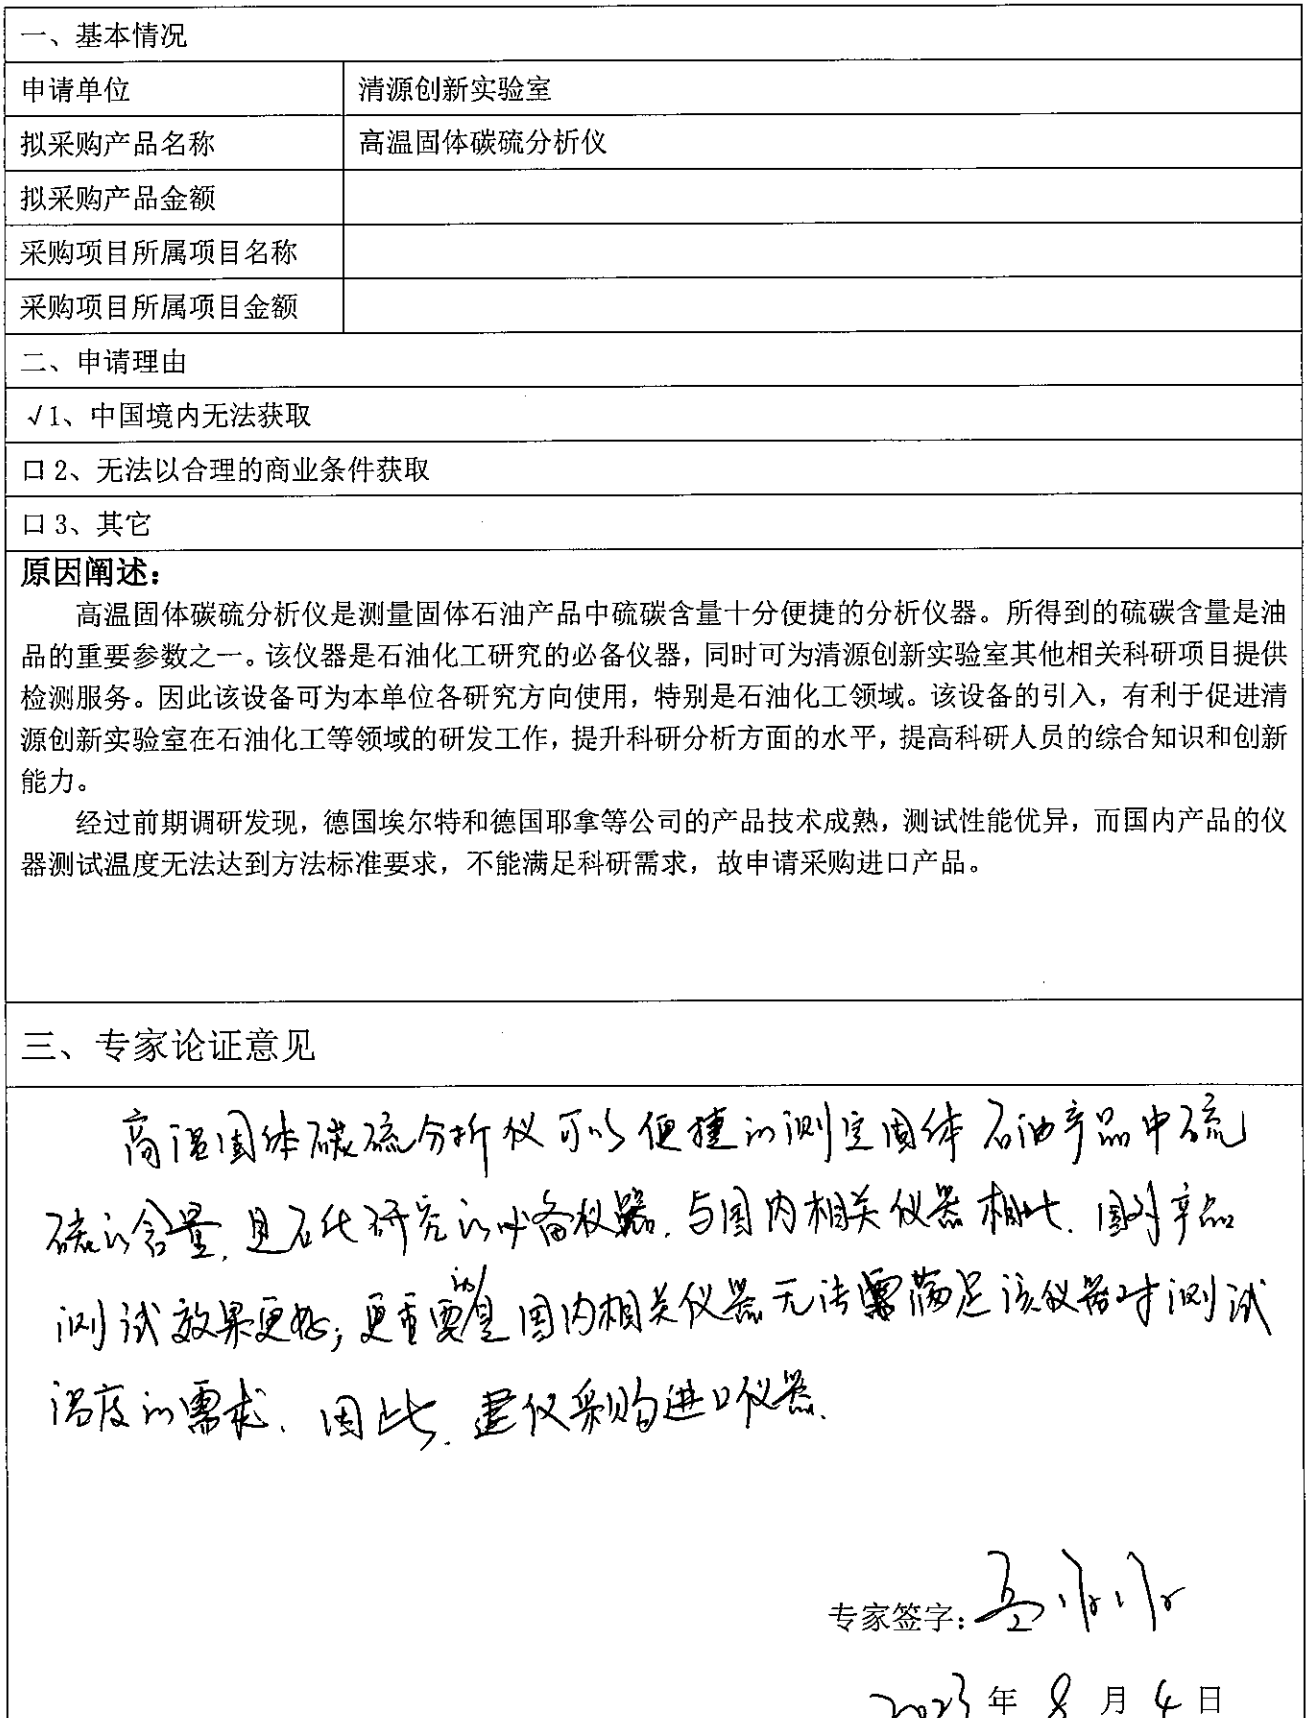 一、基本情况
申请单位 清源创新实验室
拟采购产品名称 高温固体碳硫分析仪
拟采购产品金额
采购项目所属项目名称
采购项目所属项目金额
二、申请理由
√1、中国境内无法获取
口 2、无法以合理的商业条件获取
口 3、其它
原因阐述：
高温固体碳硫分析仪是测量固体石油产品中硫碳含量十分便捷的分析仪器。所得到的硫碳含量是油
品的重要参数之一。该仪器是石油化工研究的必备仪器，同时可为清源创新实验室其他相关科研项目提供
检测服务。因此该设备可为本单位各研究方向使用，特别是石油化工领域。该设备的引入，有利于促进清
源创新实验室在石油化工等领域的研发工作，提升科研分析方面的水平，提高科研人员的综合知识和创新
能力。
经过前期调研发现，德国埃尔特和德国耶拿等公司的产品技术成熟，测试性能优异，而国内产品的仪
器测试温度无法达到方法标准要求，不能满足科研需求，故申请采购进口产品。
三、专家论证意见
高温固体碳硫分析仪可以便捷的测定固体石油产品中硫
碳的含量，是石化研究的必备仪器。与国内相关仪器相比，国外产品
测试效果更好；更重要的是国内相关仪器无法满足该仪器对测试
温度的需求。因此，建议采购进口仪器。
专家签字：
2023 年 8 月 4 日